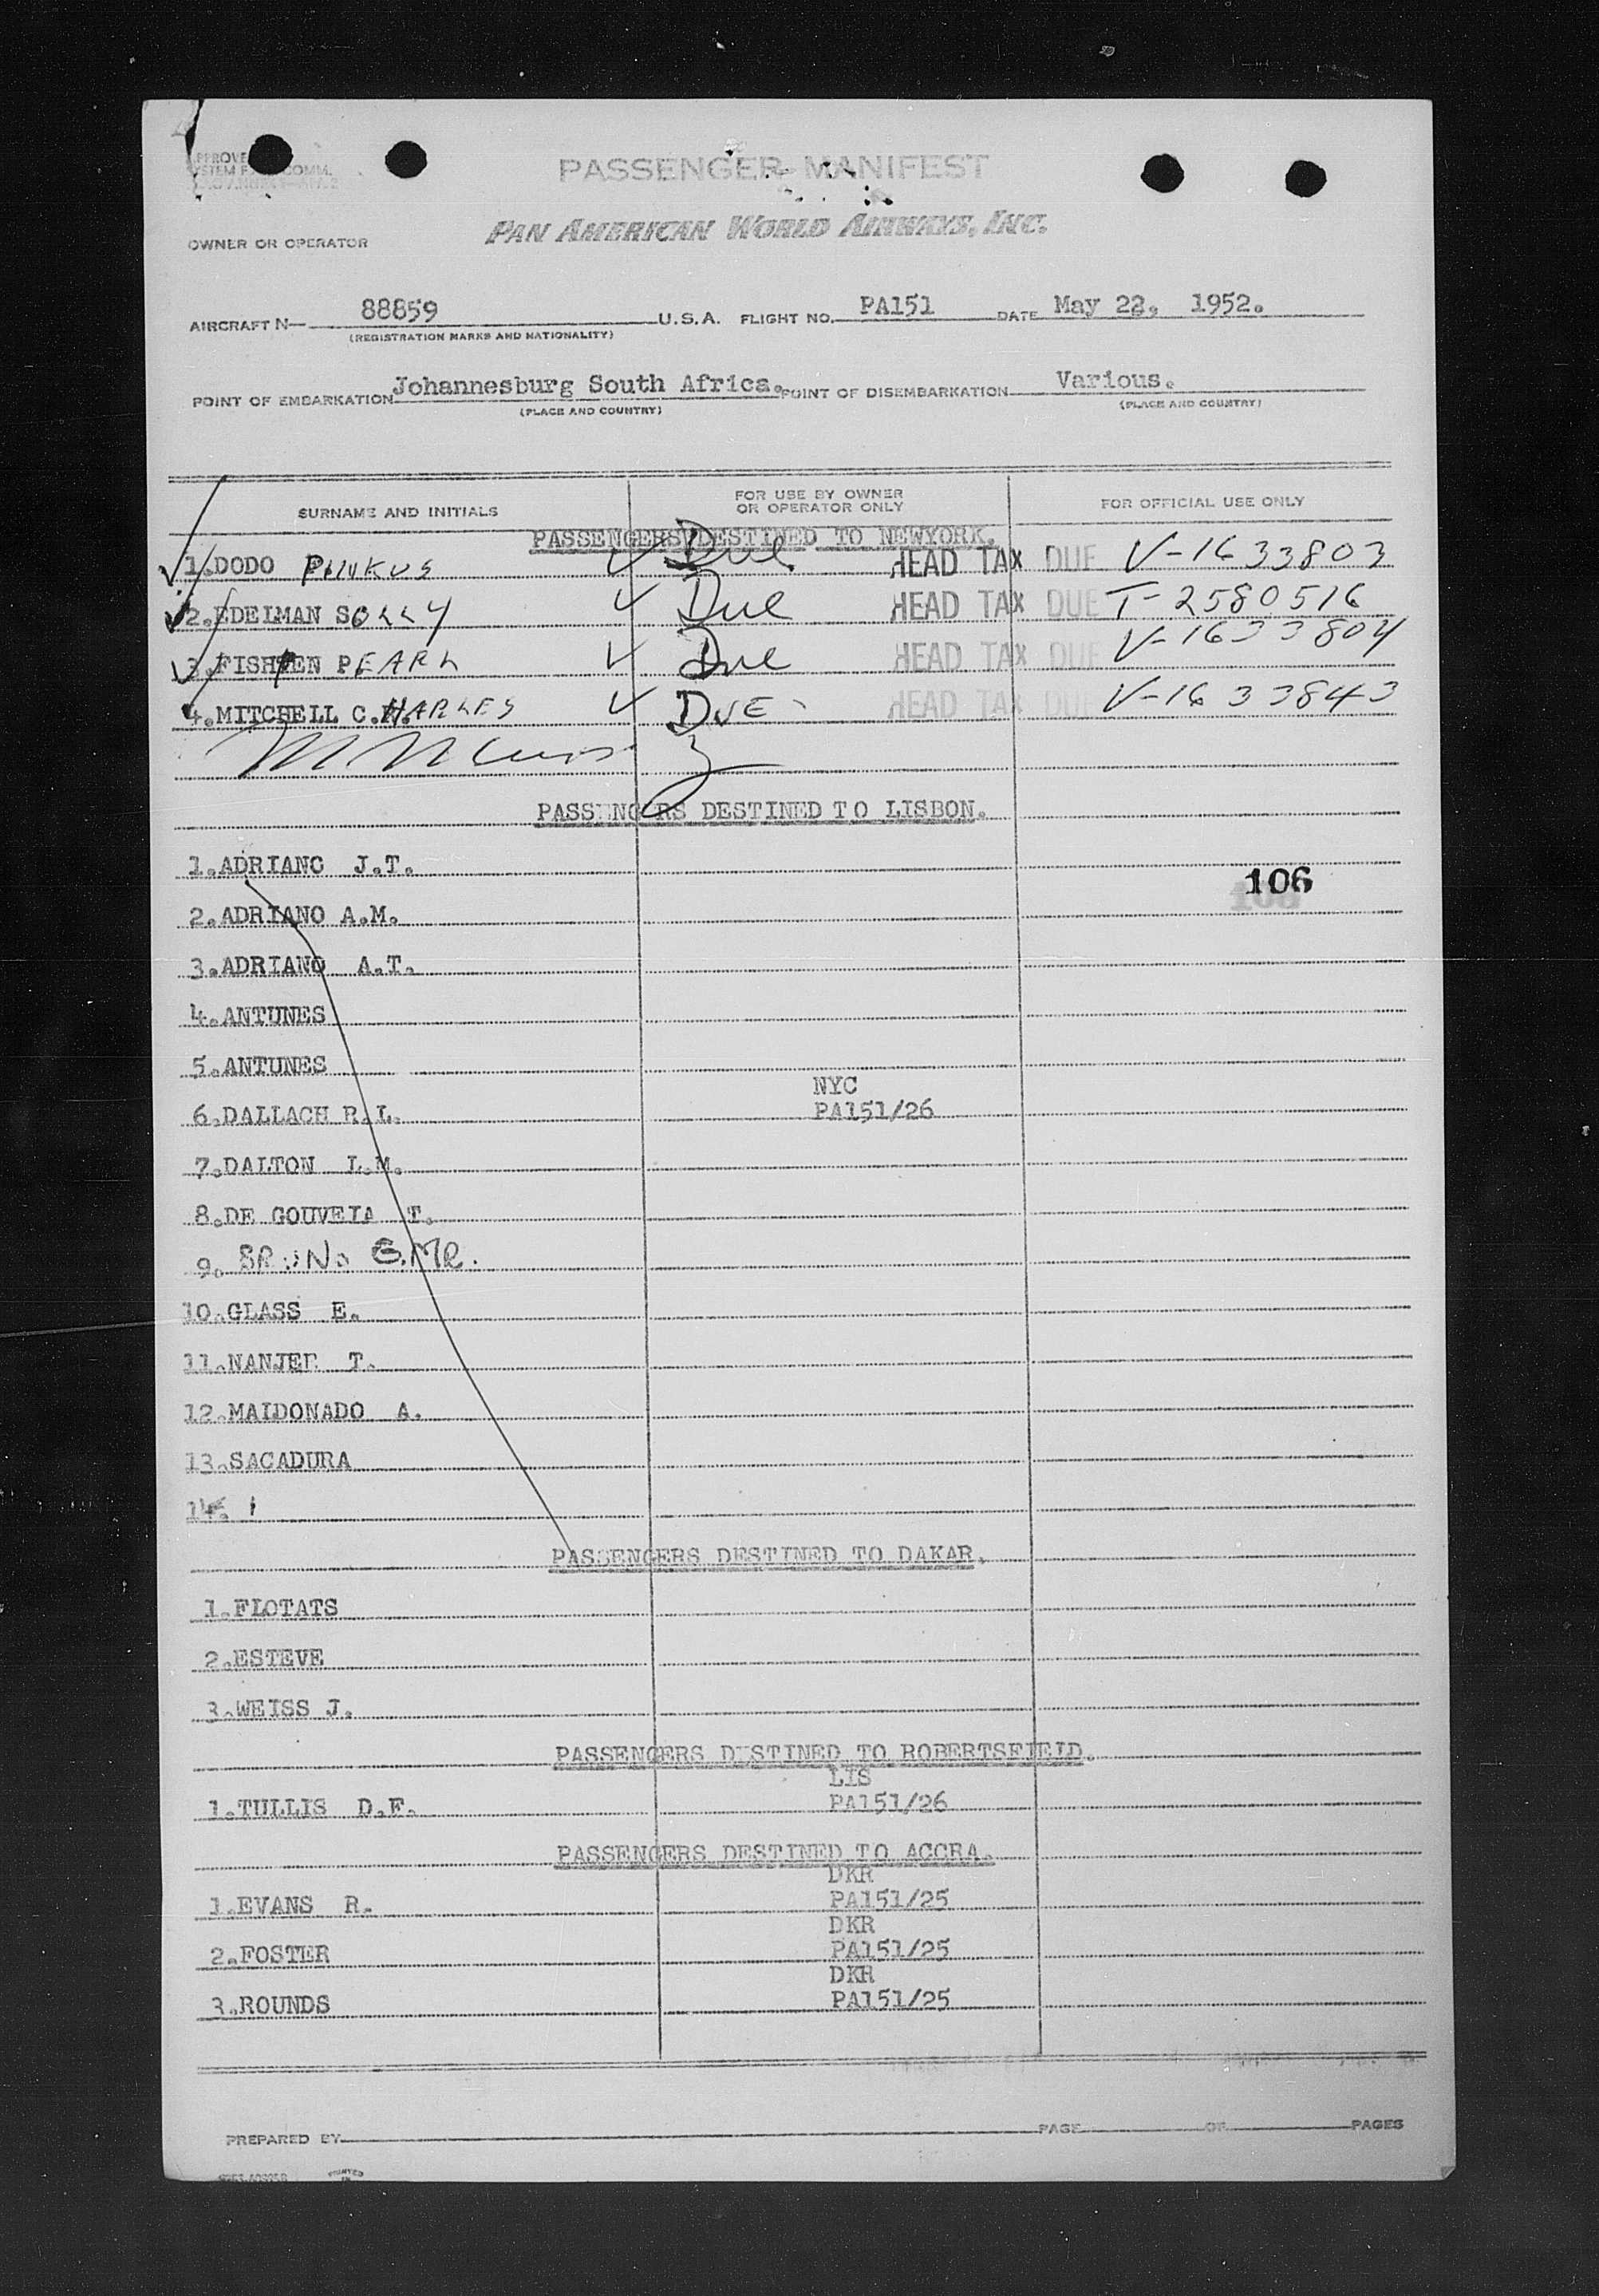 PASSENGER MANIFEST
PAN AMERICAN WORLD AIRWAYS, INC.
OWNER OR OPERATOR
AIRCRAFT N— 88859 U.S.A. FLIGHT NO. PA151 DATE May 22, 1952.
(REGISTRATION MARKS AND NATIONALITY)
POINT OF EMBARKATION Johannesburg South Africa. POINT OF DISEMBARKATION Various.
(PLACE AND COUNTRY) (PLACE AND COUNTRY)
SURNAME AND INITIALS FOR USE BY OWNER OR OPERATOR ONLY FOR OFFICIAL USE ONLY
PASSENGERS DESTINED TO NEWYORK.
1.DODO PINKUS Due HEAD TAX DUE V-1633803
2.EDELMAN SOLLY Due HEAD TAX DUE T-2580516
3.FISHPEN PEARL Due HEAD TAX DUE V-1633804
4.MITCHELL C.HARLES DUE HEAD TAX DUE V-1633843
PASSENGERS DESTINED TO LISBON.
1.ADRIANO J.T.
106
2.ADRIANO A.M.
3.ADRIANO A.T.
4.ANTUNES
5.ANTUNES
NYC
6.DALLACH R.L. PA151/26
7.DALTON L.M.
8.DE GOUVEIA T.
9. BRUNO G.MR.
10.GLASS E.
11.NANJER T.
12.MALDONADO A.
13.SACADURA
14.
PASSENGERS DESTINED TO DAKAR.
1.FLOTATS
2.ESTEVE
3.WEISS J.
PASSENGERS DESTINED TO ROBERTSFIELD.
LIS
1.TULLIS D.F. PA151/26
PASSENGERS DESTINED TO ACCRA.
DKR
1.EVANS R. PA151/25
DKR
2.FOSTER PA151/25
DKR
3.ROUNDS PA151/25
PREPARED BY PAGE OF PAGES
PRINTED IN